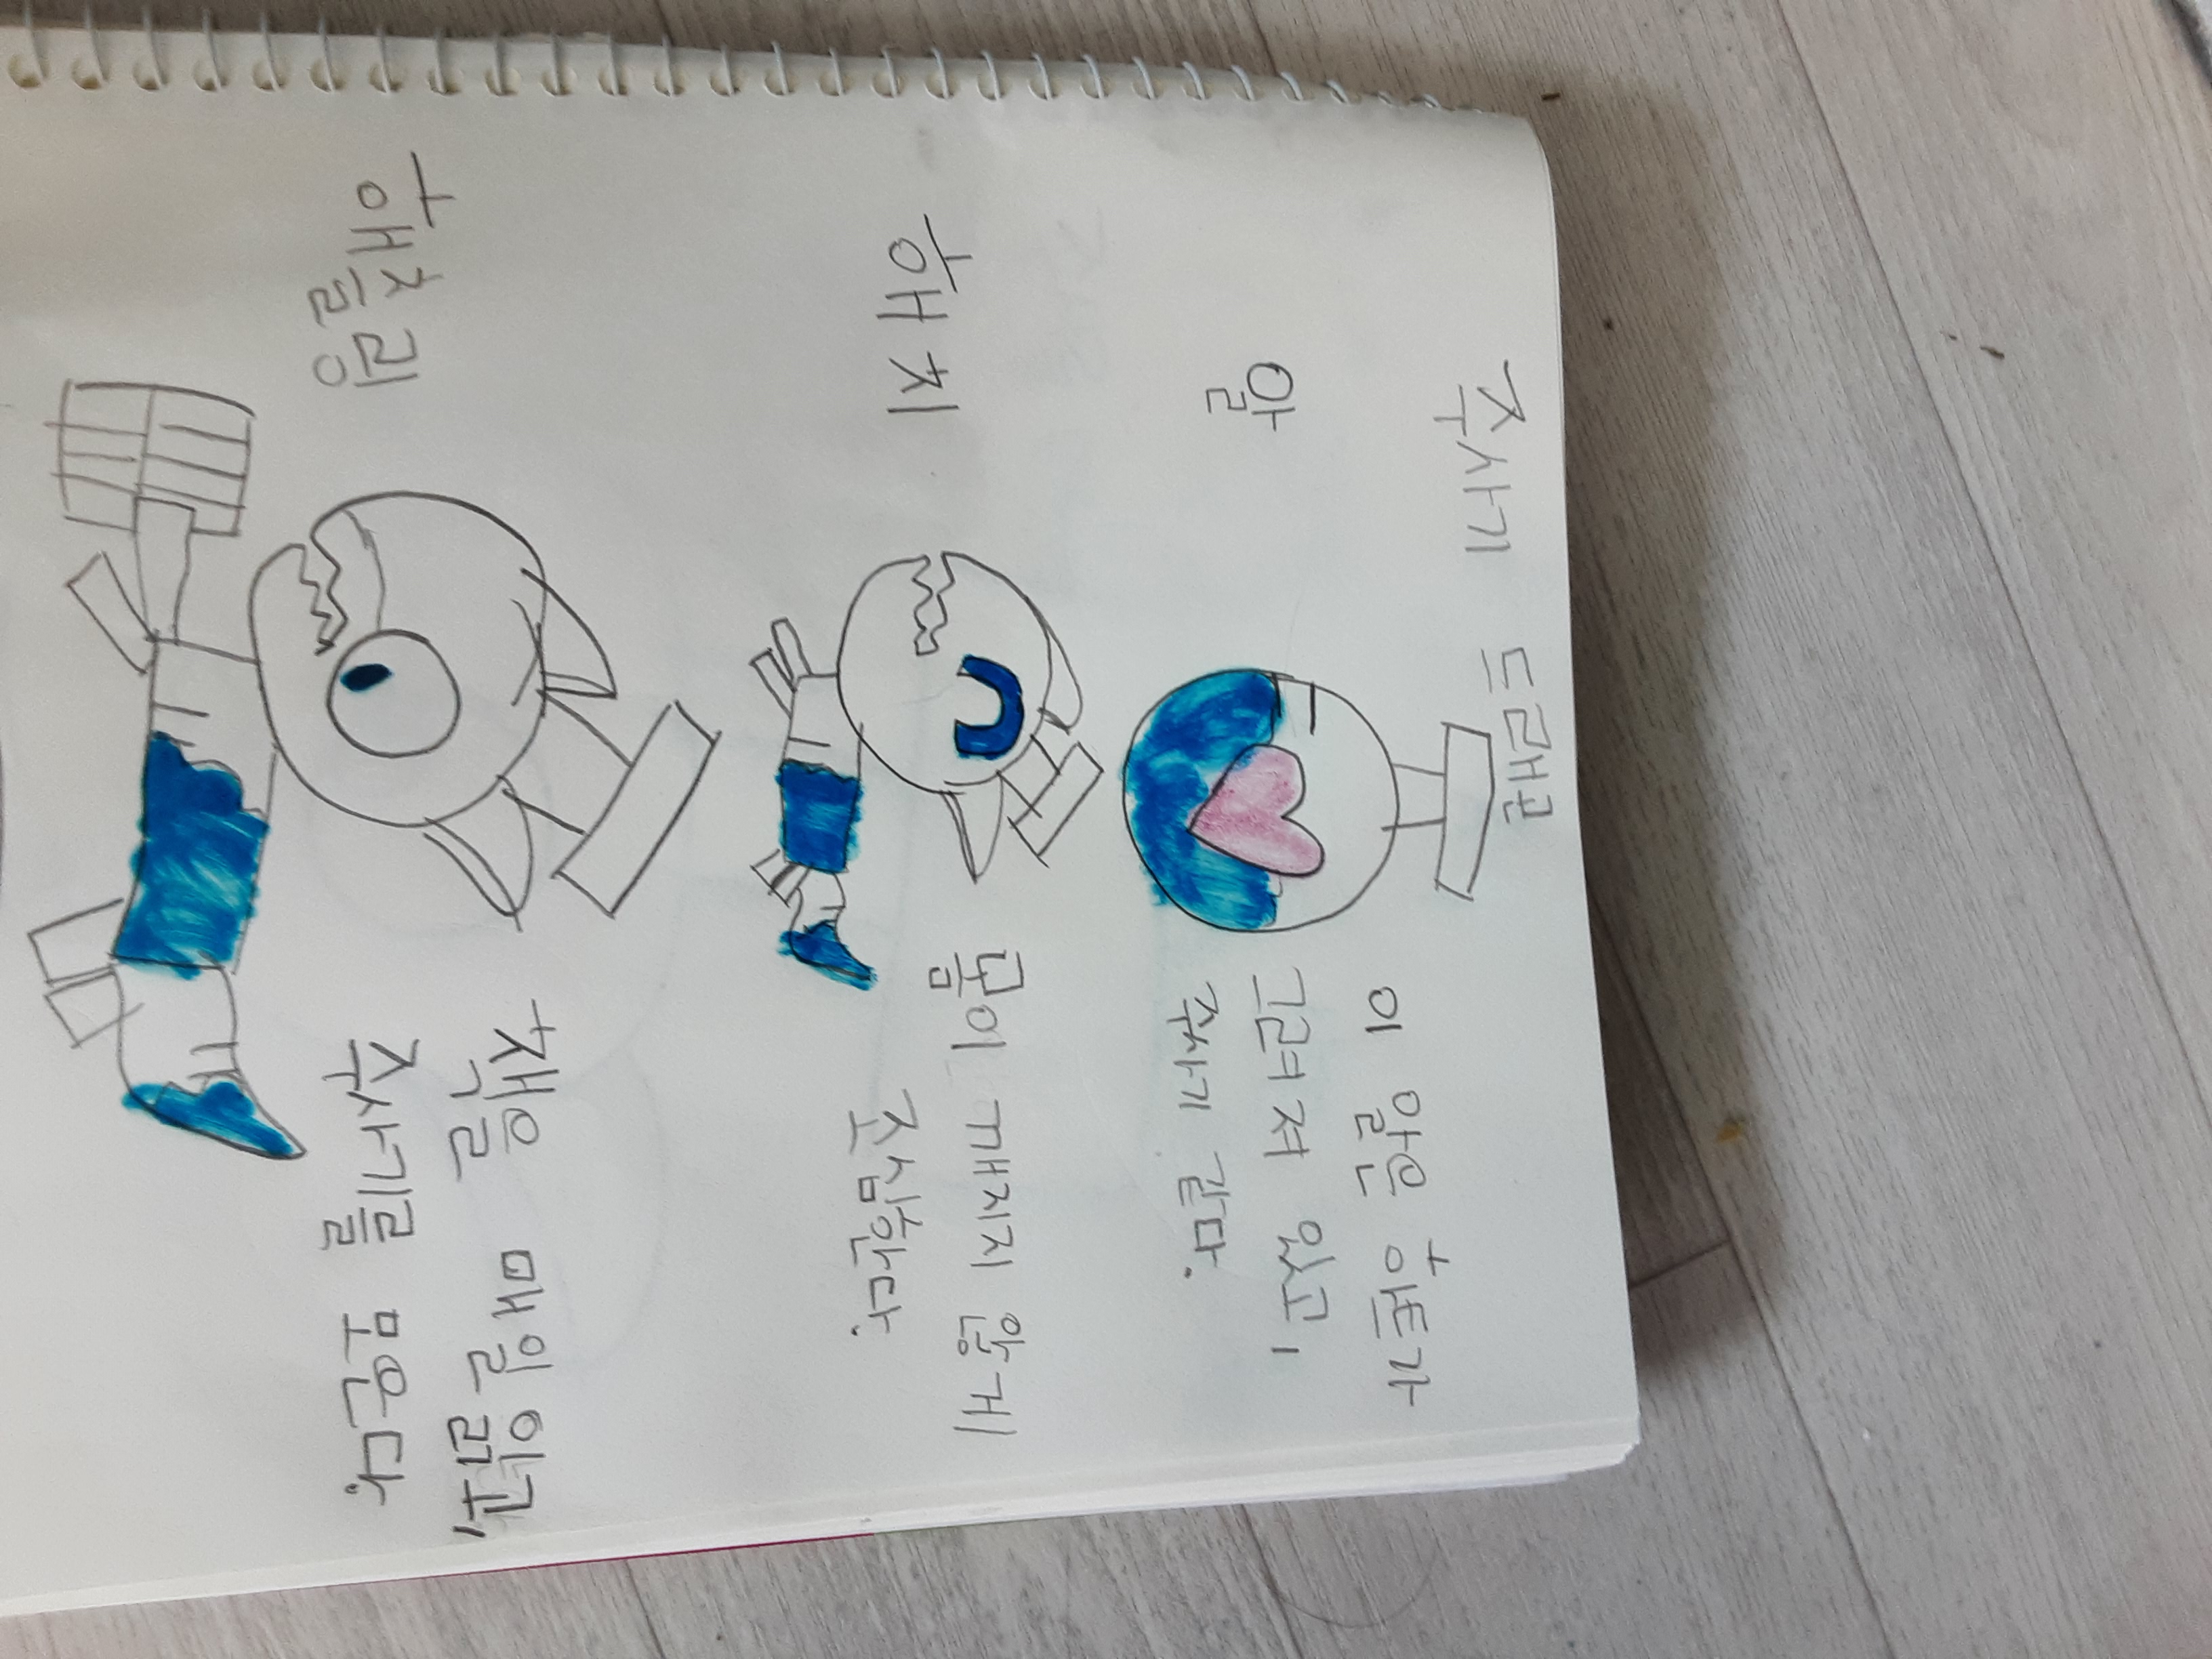 주사기 드래곤
알
이 알은 하트가
그려져 있고,
주사기 같다.
해치
몸이 깨지지 않게
조심한다.
해츨링
책을 매일
주사기를